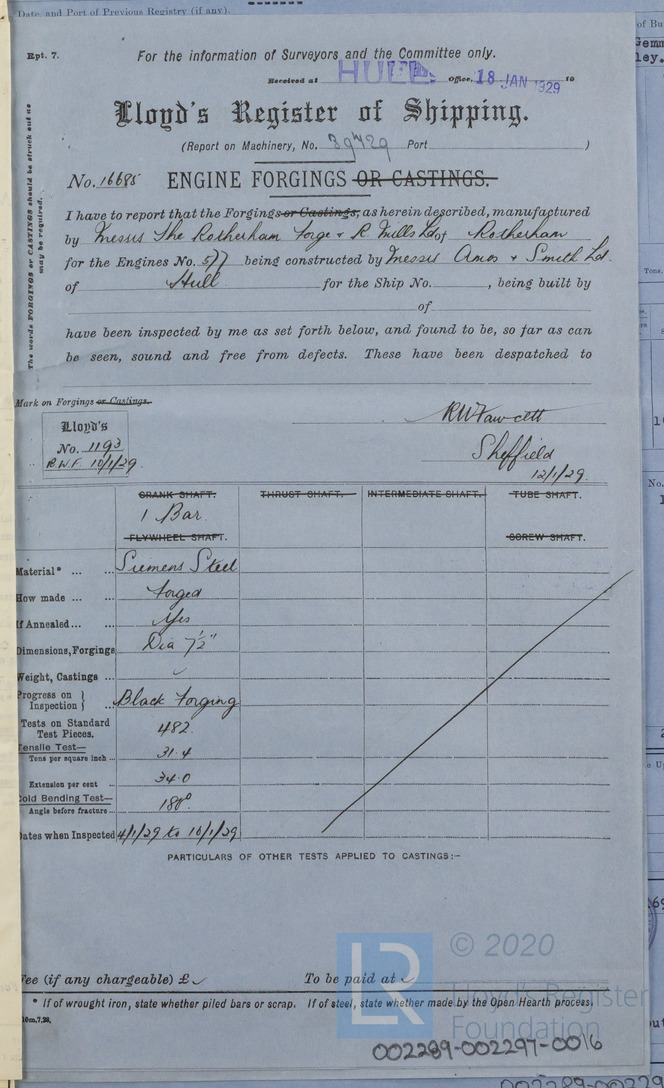 Date and Port of Previous Registry (if any).
Rpt. 7.
For the information of Surveyors and the Committee only.
Received at HULL Office, 18 JAN 1929 19
Lloyd's Register of Shipping.
(Report on Machinery, No. 39729 Port )
No. 16685 ENGINE FORGINGS OR CASTINGS.
The words FORGINGS or CASTINGS should be struck out as may be required.
I have to report that the Forgings or Castings, as herein described, manufactured
by Messrs The Rotherham Forge & R. Mills Ld of Rotherham
for the Engines No. 577 being constructed by Messrs Amos & Smith Ld.
of Hull for the Ship No. , being built by
of
have been inspected by me as set forth below, and found to be, so far as can
be seen, sound and free from defects. These have been despatched to
Mark on Forgings or Castings.
Lloyd's
No. 1193
R.W.F. 10/1/29.
RW Fawcett
Sheffield
12/1/29.
CRANK SHAFT. THRUST SHAFT. INTERMEDIATE SHAFT. TUBE SHAFT.
1 Bar.
FLYWHEEL SHAFT. SCREW SHAFT.
Material* ... ... Siemens Steel
How made ... ... Forged
If Annealed ... ... Yes
Dimensions, Forgings Dia 7½"
Weight, Castings ...
Progress on Inspection } ... Black Forging
Tests on Standard Test Pieces. 482
Tensile Test—
Tons per square inch ... 31.4
Extension per cent 34.0
Cold Bending Test—
Angle before fracture ... 180°
Dates when Inspected 4/1/29 to 10/1/29
PARTICULARS OF OTHER TESTS APPLIED TO CASTINGS:—
Fee (if any chargeable) £ To be paid at
* If of wrought iron, state whether piled bars or scrap. If of steel, state whether made by the Open Hearth process.
10m,7,28.
LR
© 2020
Lloyd's Register
Foundation
002289-002297-0016